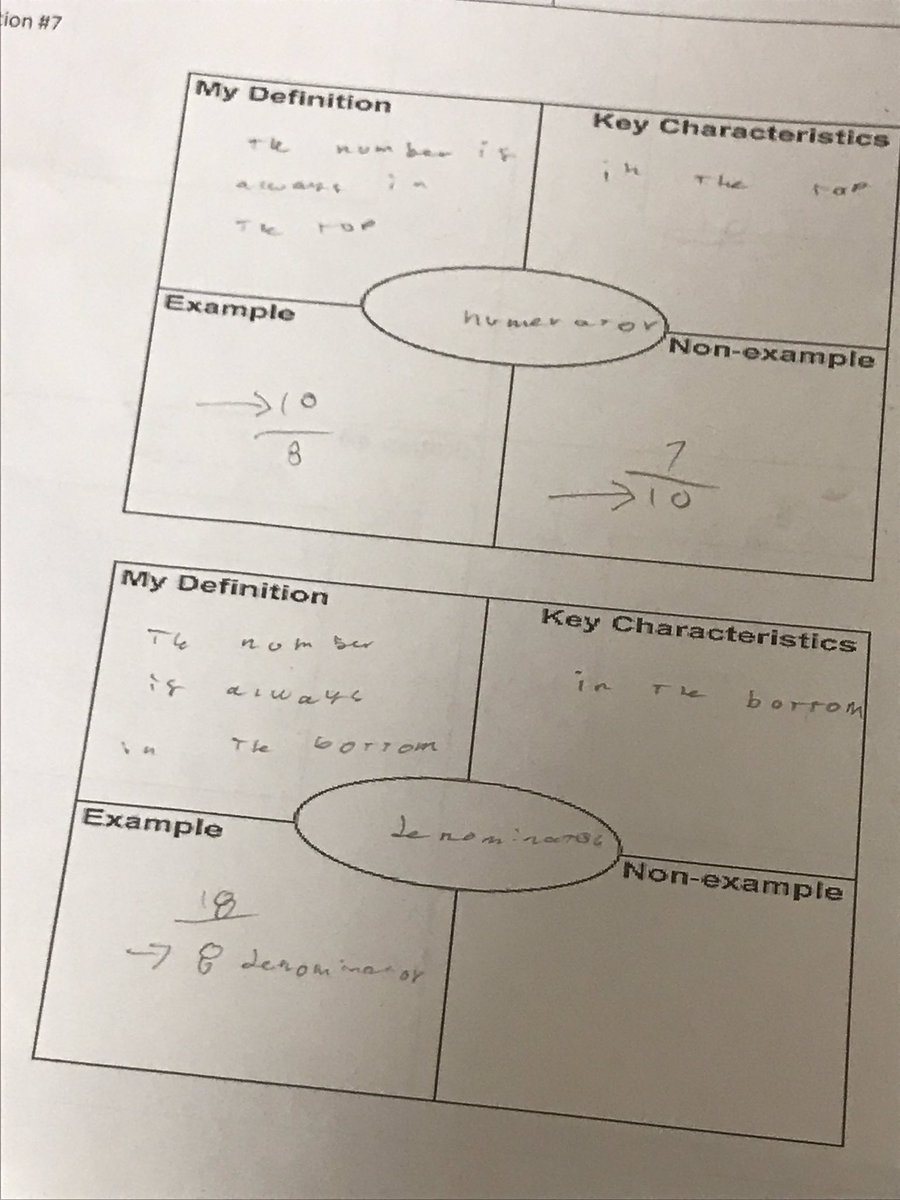 tion #7
My Definition
The number is
always in
The top
Key Characteristics
in the top
numerator
Example
→ 10
8
Non-example
7
→ 10
My Definition
The number
is always
in The bottom
Key Characteristics
in The bottom
denominator
Example
18
→ 8 denominator
Non-example